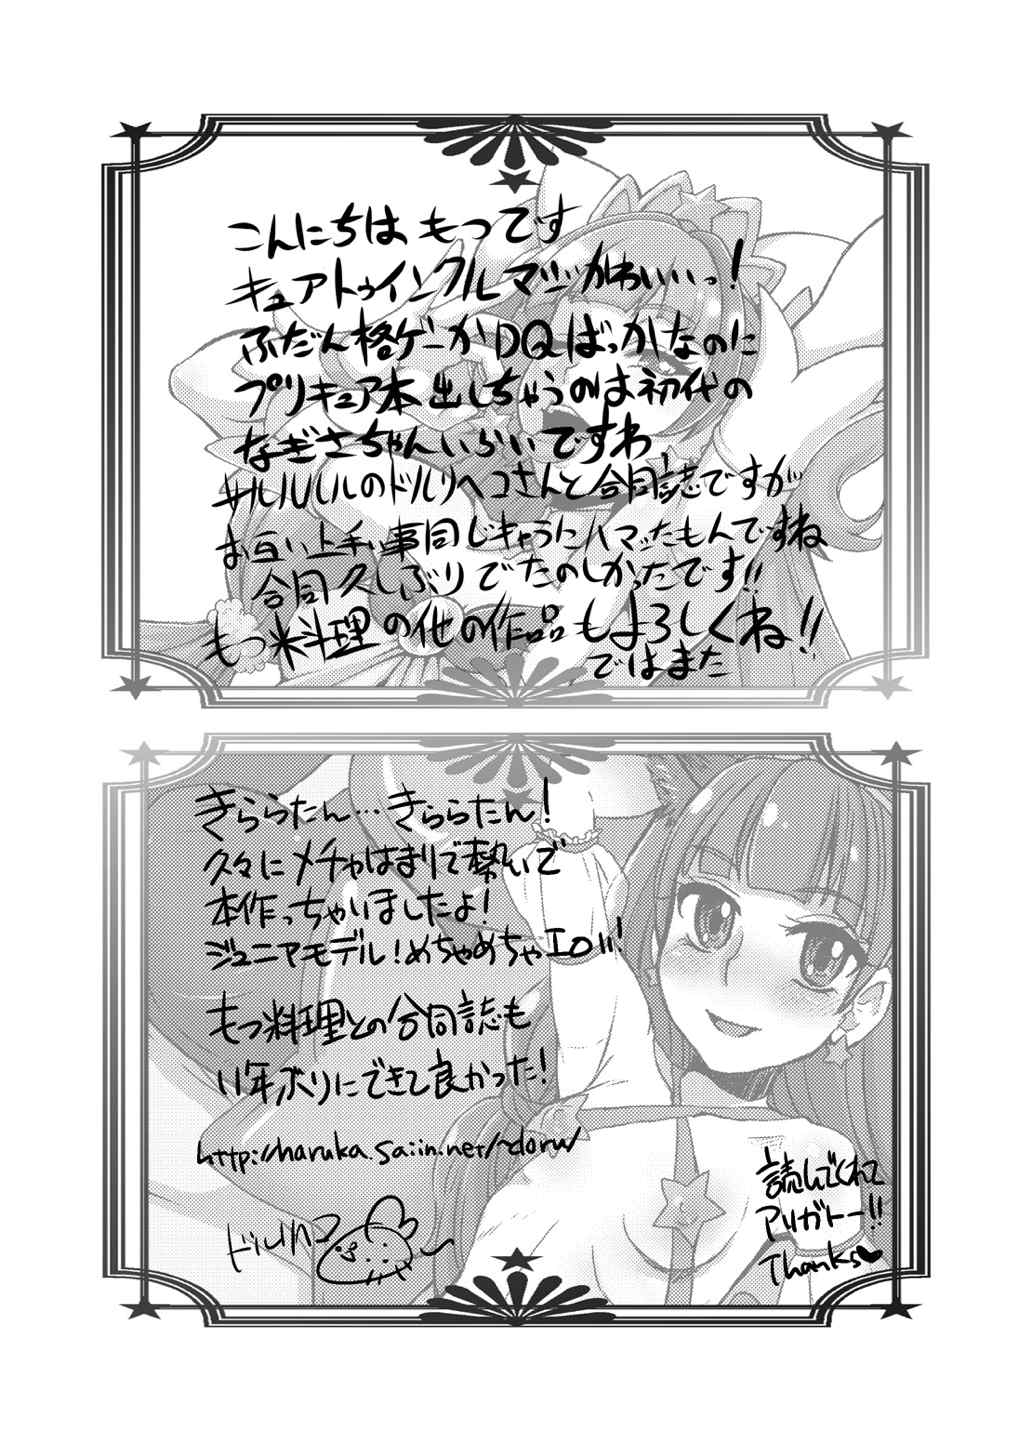 こんにちは もつです
キュアトゥインクルマジかわいいっ！
ふだん格ゲーかDQばっかなのに
プリキュア本出しちゃうのは初代の
なぎさちゃんいらいですわ
サルルルルのドルリヘコさんと合同誌ですが
お互い上手い事同じキャラにハマったもんですね
合同久しぶりでたのしかったです!!
もつ料理の他の作品もよろしくね!!
ではまた
きららたん…きららたん！
久々にメチャはまりで勢いで
本作っちゃいましたよ！
ジュニアモデル！めちゃめちゃエロい！
もつ料理との合同誌も
11年ぶりにできて良かった！
http://haruka.saiin.net/~doru/
ドルリヘコ
読んでくれて
アリガトー!!
Thanks♥